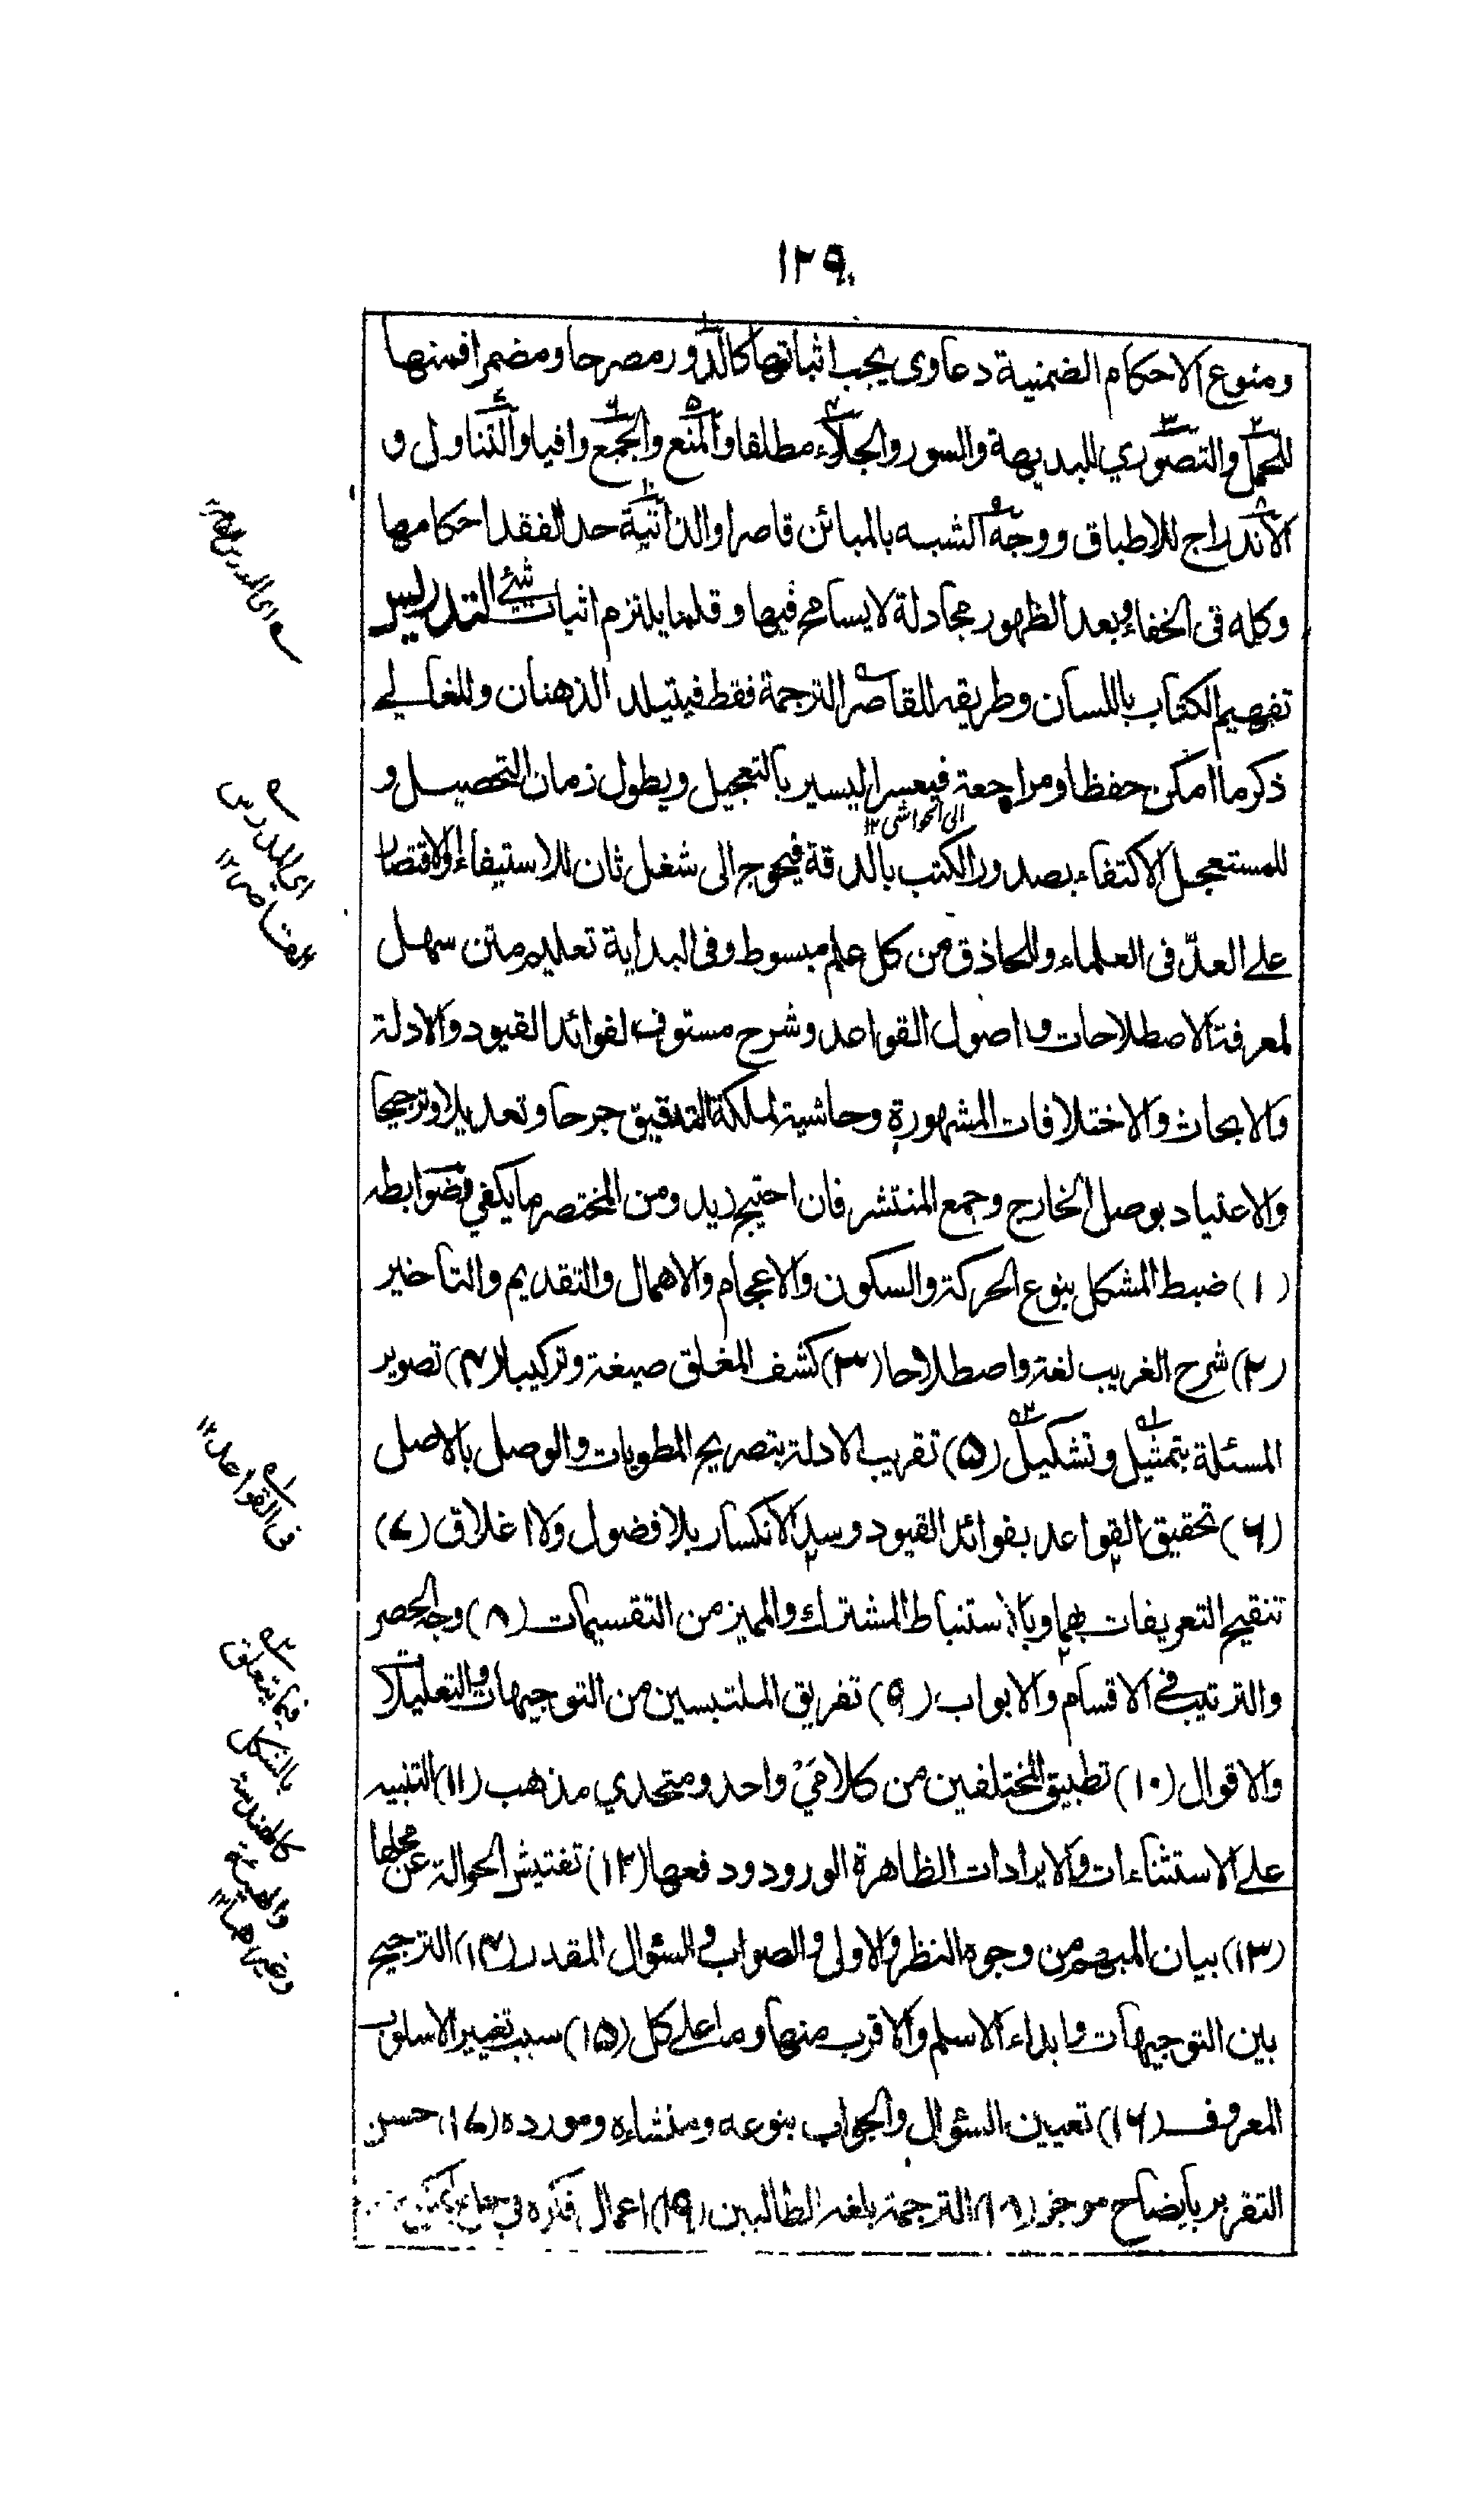 ١٢٩
ومنوع الاحكام الضمنية دعاوى يجب اثباتها كالدور مصرحا ومضمرا فمنها
للحمل والتصوري للبديهة والسور والجلاء مطلقا والمنع والجمع وافيا والتناول و
الاندراج للاطباق ووجه الشبه بالمبائن قاصرا والذاتية حدا لفقد احكامها
وكله في الخفاء وبعد الظهور مجادلة لا يسامح فيها وقلما يلتزم اثبات شئ التدريس
تفهيم الكتاب باللسان وطريقه للقاصر الترجمة فقط فيتبلد الذهنان وللغالي
ذكر ما امكن حفظا ومراجعة فيعسر اليسير بالتعجيل ويطول زمان التحصيل و
الى الحواشى ١٢
للمستعجل الاكتفاء بصدور الكتب بالدقة فيحوج الى شغل ثان للاستيفاء او الاقتصار
على العدّ في العلماء وللحاذق من كل علم مبسوط وفي البداية تعليم متن سهل
لمعرفة الاصطلاحات واصول القواعد وشرح مستوف لفوائد القيود والادلة
والابحاث والاختلافات المشهورة وحاشية لملكة التدقيق جرحا وتعديلا وترجيحا
والاعتياد بوصل الخارج وجمع المنتشر فان احتيج زيد ومن المختصر ما يكفي وضوابطه
(١) ضبط المشكل بنوع الحركة والسكون والاعجام والاهمال والتقديم والتاخير
(٢) شرح الغريب لغة واصطلاحا (٣) كشف المغلق صيغة وتركيبا (٤) تصوير
المسئلة بتمثيل وتشكيل (٥) تقريب الادلة بتصريح المطويات والوصل بالاصل
(٦) تحقيق القواعد بفوائد القيود وسد الانكسار بلا فضول ولا اغلاق (٧)
تنقيح التعريفات بهما وبالاستنباط المشترك والمميز من التقسيمات (٨) وجه الحصر
والترتيب في الاقسام والابواب (٩) تفريق الملتبسين من التوجيهات والتعليلات
والاقوال (١٠) تطبيق المختلفين من كلامَيْ واحد ومتحدي مذهب (١١) التنبيه
على الاستثناءات والايرادات الظاهرة الورود ودفعها (١٢) تفتيش الحوالة عن محلها
(١٣) بيان المبهم من وجوه النظر والاولى والصواب والسؤال المقدر (١٤) الترجيح
بين التوجيهات وابداء الاسلم والاقرب منها وما على كل (١٥) سبب تغيير الاسلوب
المعروف (١٦) تعيين السؤال والجواب بنوعه ومنشاءه ومورده (١٧) حسن
التقرير بايضاح موجز (١٨) الترجمة بلغة الطالبين (١٩) اعمال فكره في
اى المدرس
القاصر ١٢
فى القواعد ١٢
فيما يتعلق
بالشكل
كالهندسة
والهيئة
وغيرهما ١٢